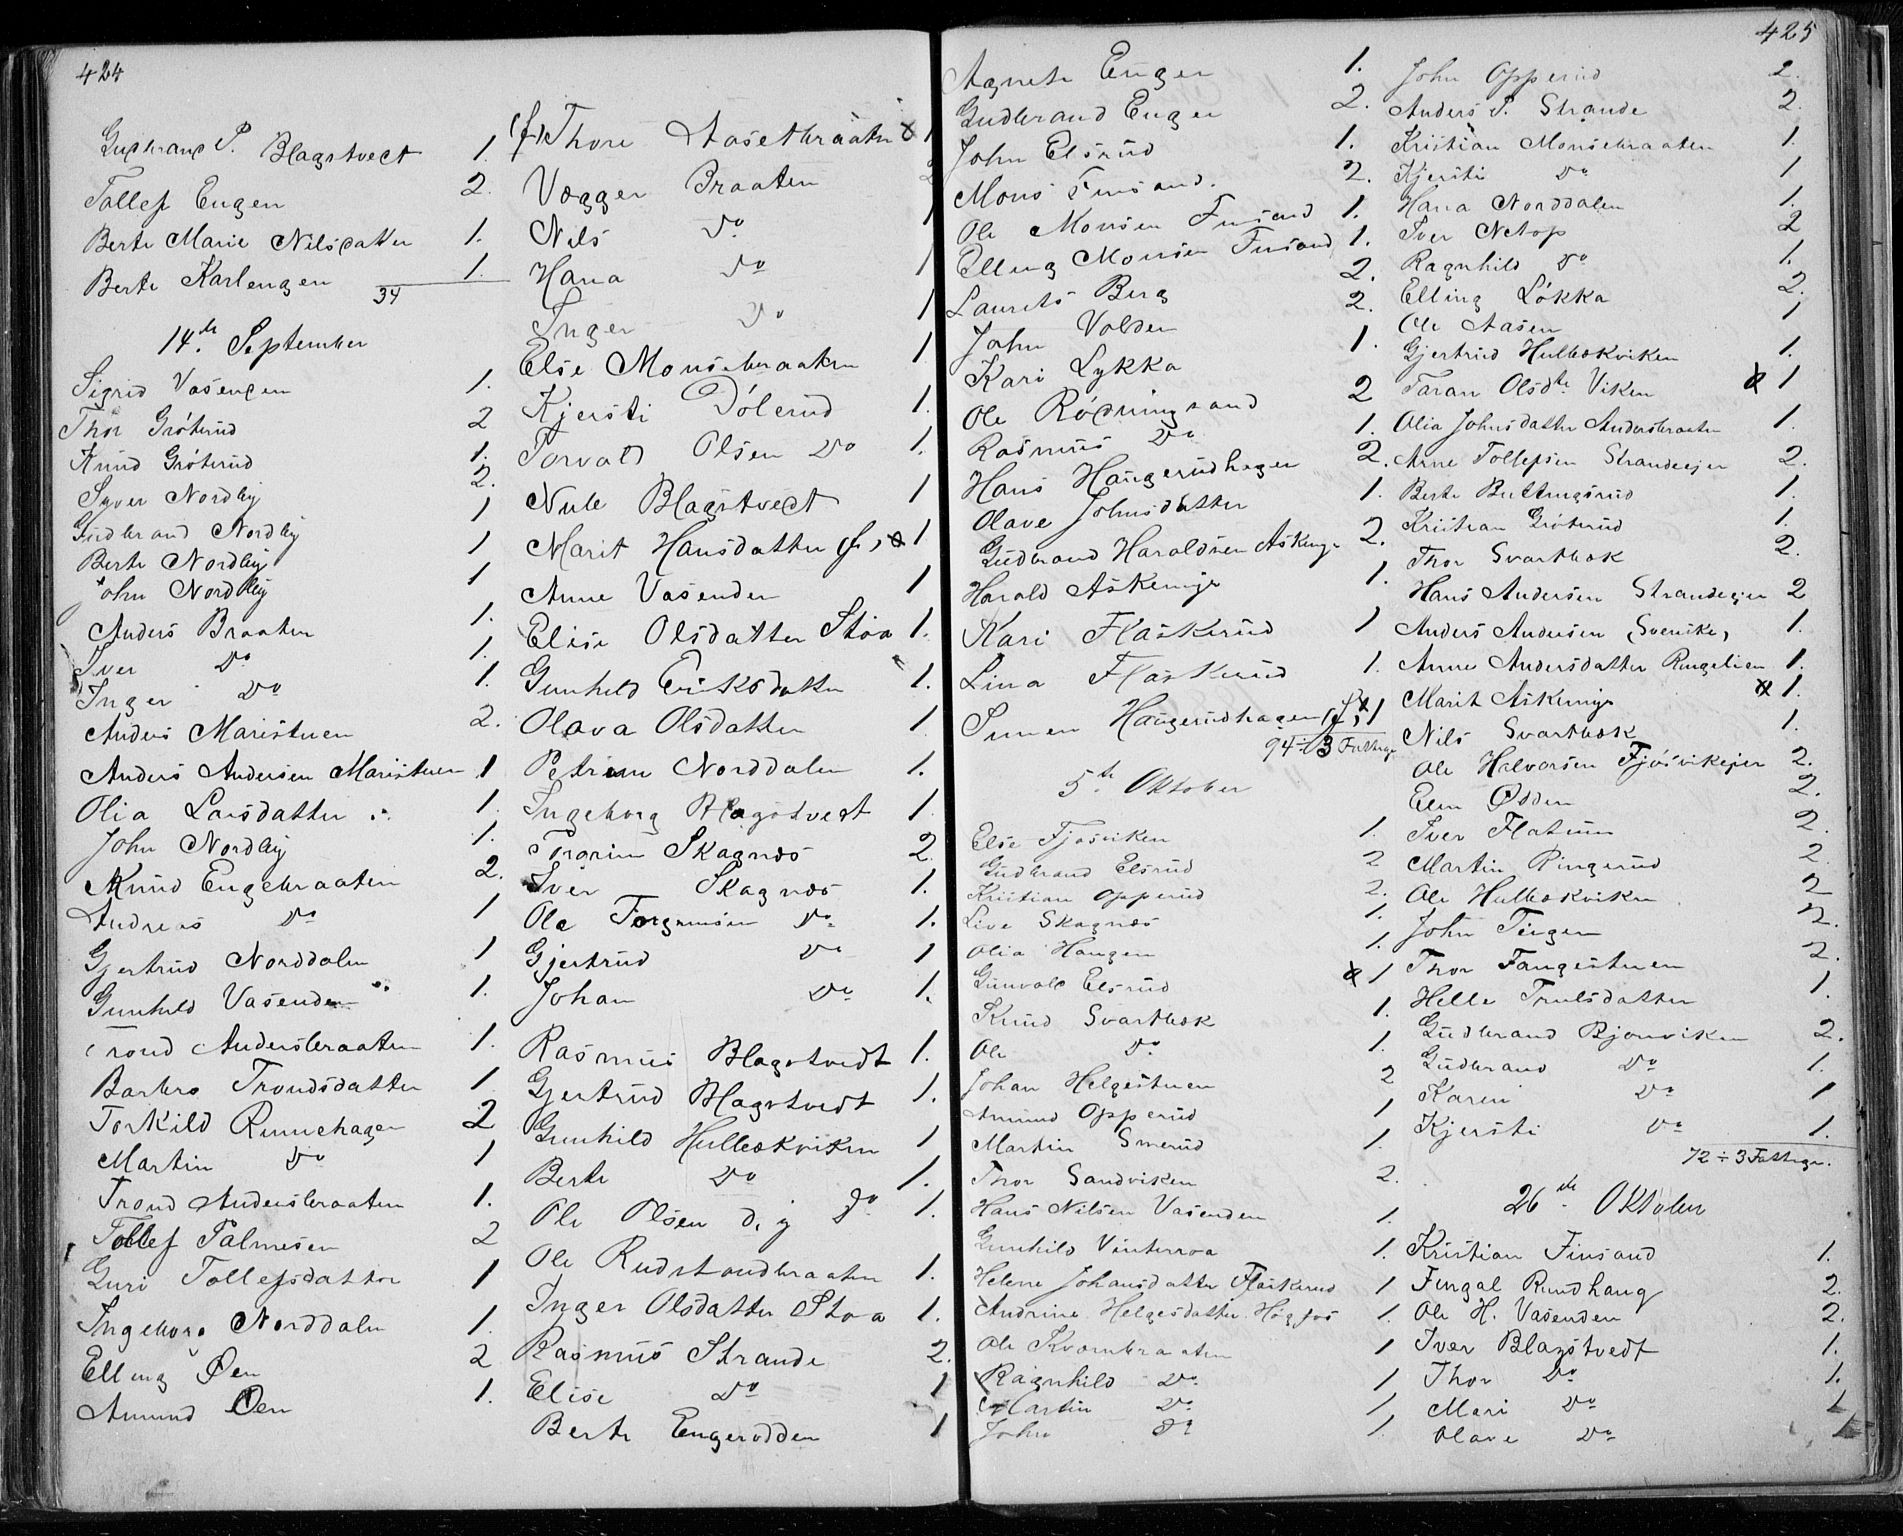 424
Gudbrand P. Blagstvedt 1.
Tollef Eugen 2.
Berte Marie Nilsdatter 1.
Berte Karlengen 1.
34
14de September
Sigrid Vasenden 1.
Thor Gröterud 2
Knud Gröterud 1.
Syver Nordby 2.
Gudbrand Nordby 1
Berte Nordby 1
John Nordby 1
Anders Braaten 1.
Iver Do 1.
Inger Do 1.
Anders Maristuen 2.
Anders Andersen Maristuen 1
Olia Larsdatter 1.
John Nordby 1.
Knud Engebraaten 2.
Andreas Do 1
Gjertrud Norddalen 1
Gunhild Vasenden 1.
Trond Andersbraaten 1.
Barbro Trondsdatter 1
Torkild Runnehagen 2
Martin Do 1
Trond Andersbraaten 1.
Tollef Palmesen 2
Guri Tollefsdatter 1
Ingeborg Norddalen 1.
Elling Øen 2
Amund Øen 1.
(f) Thore Aasetbraaten x 1
Vegger Braaten 2
Nils Do 1
Hana Do 1
Inger Do 1
Else Monsebraaten 1
Kjersti Dölerud 1.
Torvald Olsen Do 1.
Nub Blagstvedt 1
Marit Hansdatter (f) x 1
Anne Vasenden 1
Elise Olsdatter Stöa 1.
Gunhild Eriksdatter 1.
Olava Olsdatter 1
Petrine Norddalen 1.
Ingeborg Blagstvedt 1
Thorin Skagnæs 2
Iver Skagnæs 1.
Ole Torgrimsen Do 1.
Gjertrud Do 1
Johan Do 1.
Rasmus Blagstvedt 1.
Gjertrud Blagstvedt 1.
Gunhild Hulbækviken 1
Berte Do 1.
Ole Olsen d. y. Do 1.
Ole Rudstandbraaten 1.
Inger Olsdatter Stoa 1.
Rasmus Strande 2.
Elise Do 1
Berte Engerodden 1
425
Agnete Enger 1.
Gudbrand Enger 2.
John Elsrud 1.
Mons Finsand. 2.
Ole Monsen Finsand 1.
Elling Monsen Finsand 1.
Laurits Berg 2.
John Volden 2.
Kari Lykka 1.
Ole Rödningsand 2
Rasmus Do 1.
Hans Haugerudhagen 2.
Olave Johnsdatter 1.
Gudbrand Haraldsen Askeruge 2.
Harald Askernge 1.
Kari Flaskerud 1
Lina Flaskerud 1.
Simen Haugerudhagen (f) x 1
94 ÷ 3 Fattige
5te Oktober
Else Fjösviken 1.
Gudbrand Elsrud 2
Kristian Opperud 2.
Live Skagnæs 1.
Olia Haugen 1.
Gunvald Elsrud x 1
Knud Svartbæk 1.
Ole Do 1.
Johan Helgestuen 2
Amund Opperud 1
Martin Smerud 1.
Thor Sandviken 2.
Hans Nilsen Vasenden 1.
Gunhild Vinterroa 1.
Helene Johansdatter Flaskerud 1
Andrine Helgesdatter Högfos 1.
Ole Kvernbraaten 1
Ragnhild Do 1
Martin Do 1
John Do 1.
John Opperud 2.
Anders P. Strande 2.
Kristian Monsebraaten 1.
Kjersti Do 1
Hana Norddalen 1.
Iver Netop 2
Ragnhild Do 1.
Elling Løkka 2.
Ole Aasen 1
Gjertrud Hulbækviken 1.
Taran Olsdtr Viken x 1
Olia Johnsdatter Andersbraaten 1.
Arne Tollefsen Strandeejer 2.
Berte Buttingsrud 1.
Kristian Gröterud 1.
Thor Svartbæk 2.
Hans Andersen Strandeejer 2
Anders Andersen (Svenske) 1.
Anne Andersdatter Ringelien 1.
Marit Askernge x 1.
Nils Svartbæk 1.
Ole Halvorsen Fjösvikejer 2.
Even Ødden 2.
Iver Flatum 2.
Martin Ringerud 2
Ole Hulbækviken 2
John Tingen 2.
Thor Fangestuen 2.
Helle Trulsdatter 1.
Gudbrand Bjonviken 2.
Gudbrand Do 1.
Karen Do 1
Kjersti Do 1.
72 ÷ 3 Fattige.
26de Oktober
Kristian Finsand 1.
Fingal Rundhaug 2.
Ole H. Vasenden 2.
Iver Blagstvedt 1.
Thor Do 1.
Mari Do 1
Olave Do 1